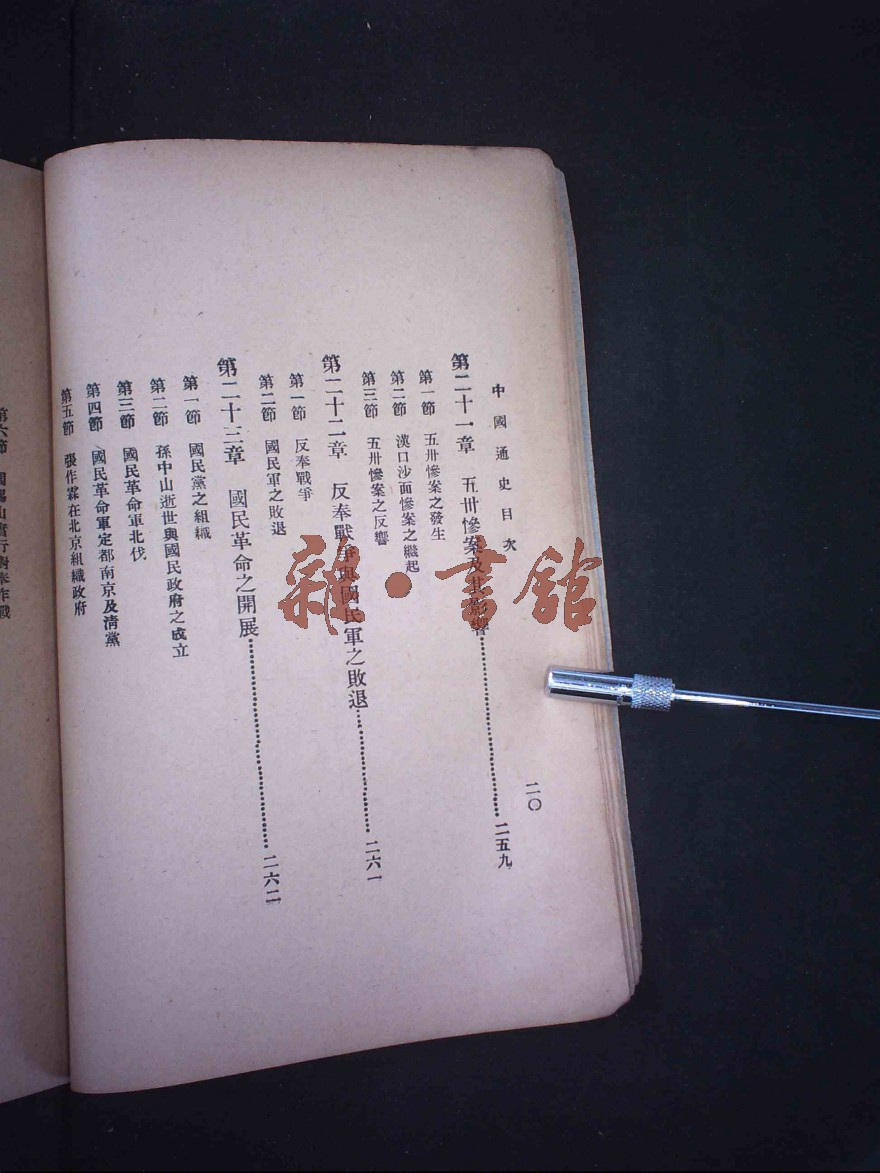 中國通史目次
二〇
第二十一章 五卅慘案及其影響……二五九
第一節 五卅慘案之發生
第二節 漢口沙面慘案之繼起
第三節 五卅慘案之反響
第二十二章 反奉戰爭與國民軍之敗退……二六一
第一節 反奉戰爭
第二節 國民軍之敗退
第二十三章 國民革命之開展……二六二
第一節 國民黨之組織
第二節 孫中山逝世與國民政府之成立
第三節 國民革命軍北伐
第四節 國民革命軍定都南京及清黨
第五節 張作霖在北京組織政府
第六節 閻錫山實行對奉作戰
雜·書館